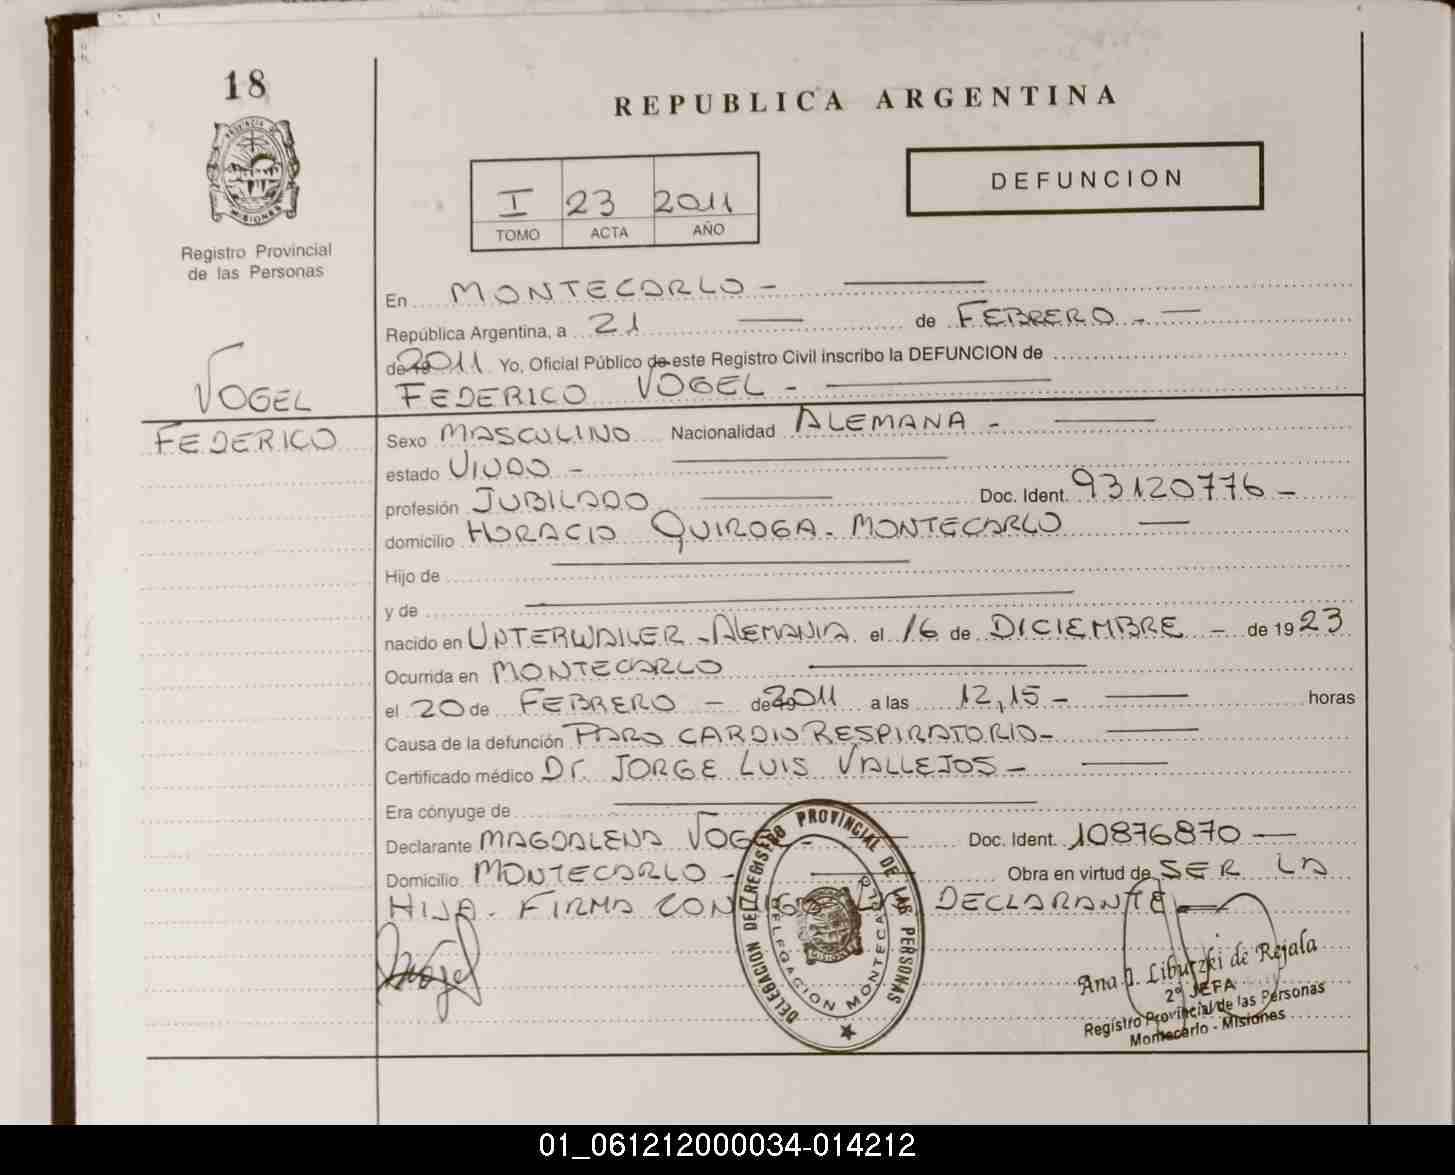 18
PROVINCIA DE
MISIONES
Registro Provincial
de las Personas
REPUBLICA ARGENTINA
I 23 2011
TOMO ACTA AÑO
DEFUNCION
En MONTECARLO -
República Argentina, a 21 de FEBRERO -
de 19 2011 Yo, Oficial Público de este Registro Civil inscribo la DEFUNCION de
VOGEL
FEDERICO
FEDERICO VOGEL -
Sexo MASCULINO Nacionalidad ALEMANA -
estado VIUDO -
profesión JUBILADO Doc. Ident. 93120776 -
domicilio HORACIO QUIROGA - MONTECARLO
Hijo de
y de
nacido en UNTERWAILER - ALEMANIA el 16 de DICIEMBRE - de 1923
Ocurrida en MONTECARLO
el 20 de FEBRERO - de 19 2011 a las 12,15 - horas
Causa de la defunción PARO CARDIO RESPIRATORIO -
Certificado médico Dr. JORGE LUIS VALLEJOS -
Era cónyuge de
Declarante MAGDALENA VOGEL - Doc. Ident. 10876870
Domicilio MONTECARLO - Obra en virtud de SER LA
HIJA. FIRMA CONMIGO LA DECLARANTE
Vogel
DELEGACION DEL REGISTRO PROVINCIAL DE LAS PERSONAS
DELEGACION MONTECARLO
Ana I. Libutzki de Rejala
2º JEFA
Registro Provincial de las Personas
Montecarlo - Misiones
01_061212000034-014212